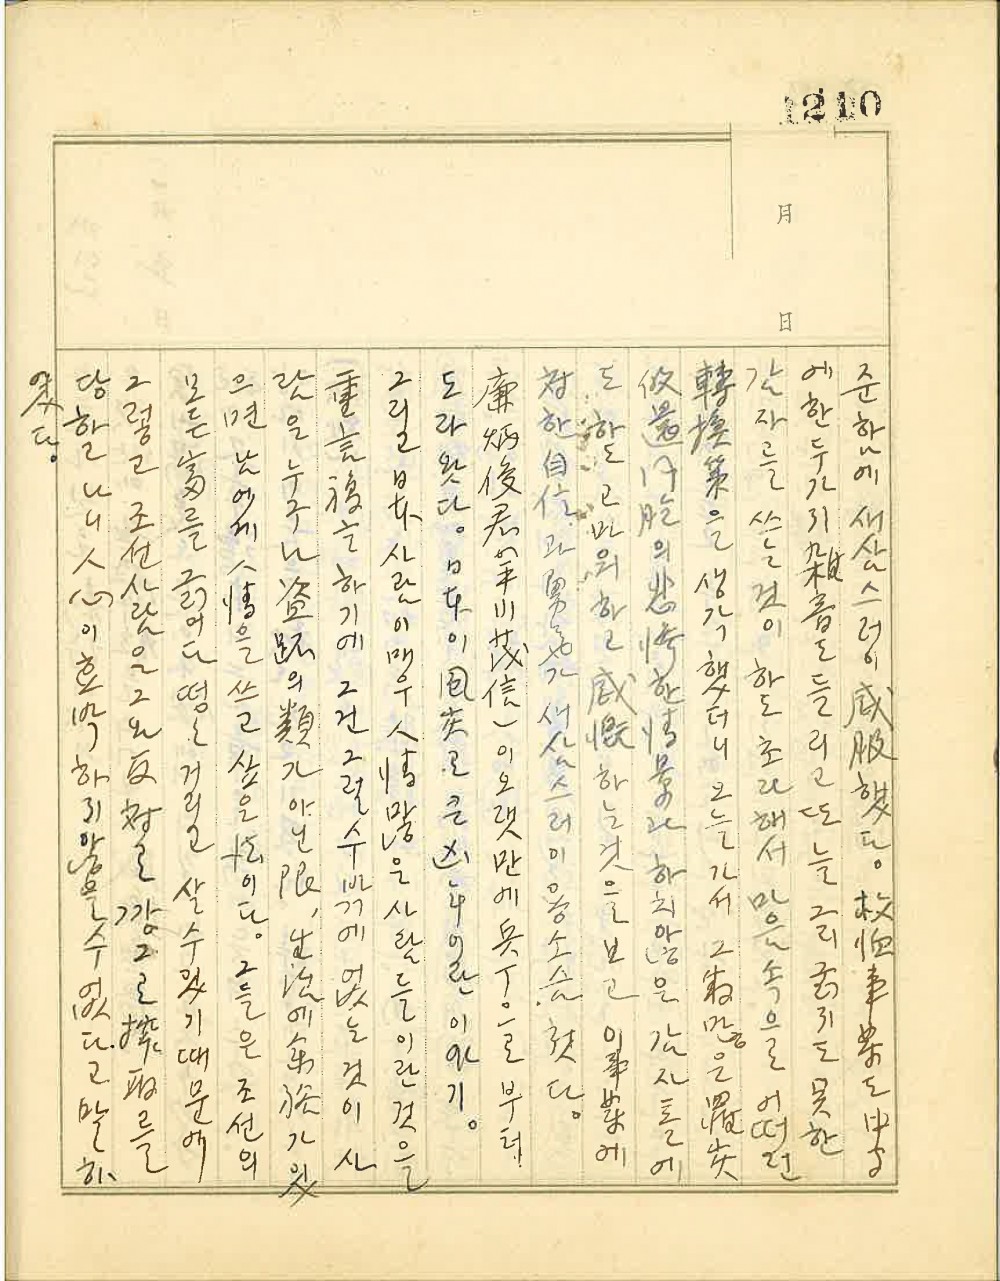 1210
月 日
준 하 에 새삼스러이 感服했다. 救恤事業도 中
에 한두가지 雜音도 들리고 또 늘 그리 굵지도 못한
감자를 쓰는 것이 하도 초라해서 마음속으로 어떠런
轉換策을 생각했더니 오늘 가서 그 만은 罹災
의 한 情景과 하치않은 감자톨에
도 하 고마워하고 感慨하는것을 보고 이 事業에
対한 自信과 勇気가 새삼스러이 용소슴 첫다.
廉炳俊君( 茂信)이 오랫만에 兵 으로부터
도라왓다. 日本이 風災로 큰 凶年이란 이야기.
그리고 日本사람이 매우 人情많은 사람들이란 것을
重言復言 하기에 그건 그럴수바께 없는 것이 사
람은 누구나 盜跖의 類가 아닌 限, 生活에 余裕가 있
으면 남에게 人情을 쓰고 싶은 이다. 그들은 조선의
모든 富를 긁어다 떵떵거리고 살 수 있기 때문에
그렇고 조선사람은 그와 反対로 깡그로 搾取를
당할나니 人心이 효박하지 않을 수 없다고 말하
였다.